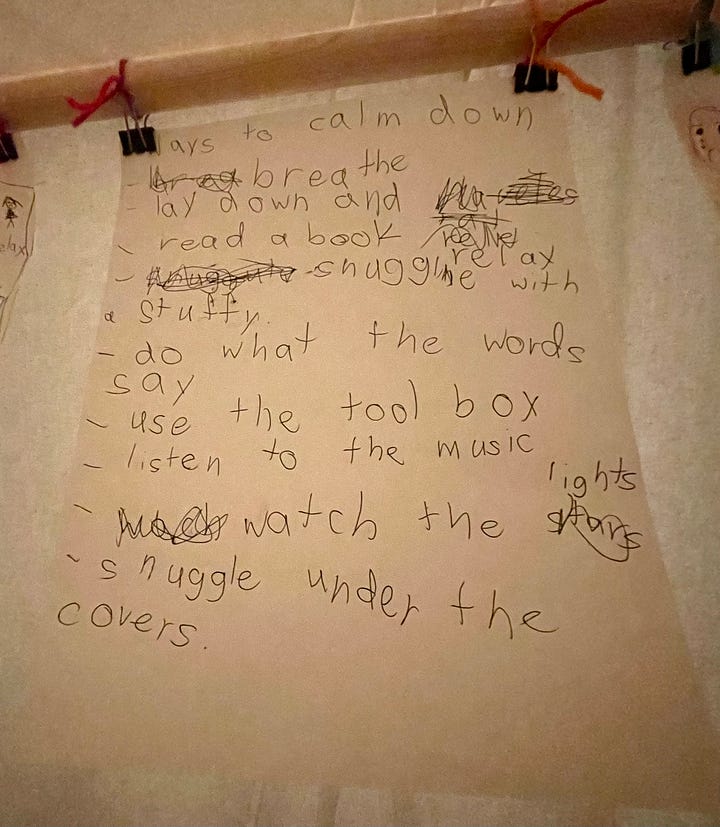 Ways to calm down
- breathe
- lay down and
relax
- read a book
- snuggle with
a stuffy.
- do what the words
say
- use the tool box
- listen to the music
- watch the lights
- snuggle under the
covers.
elax